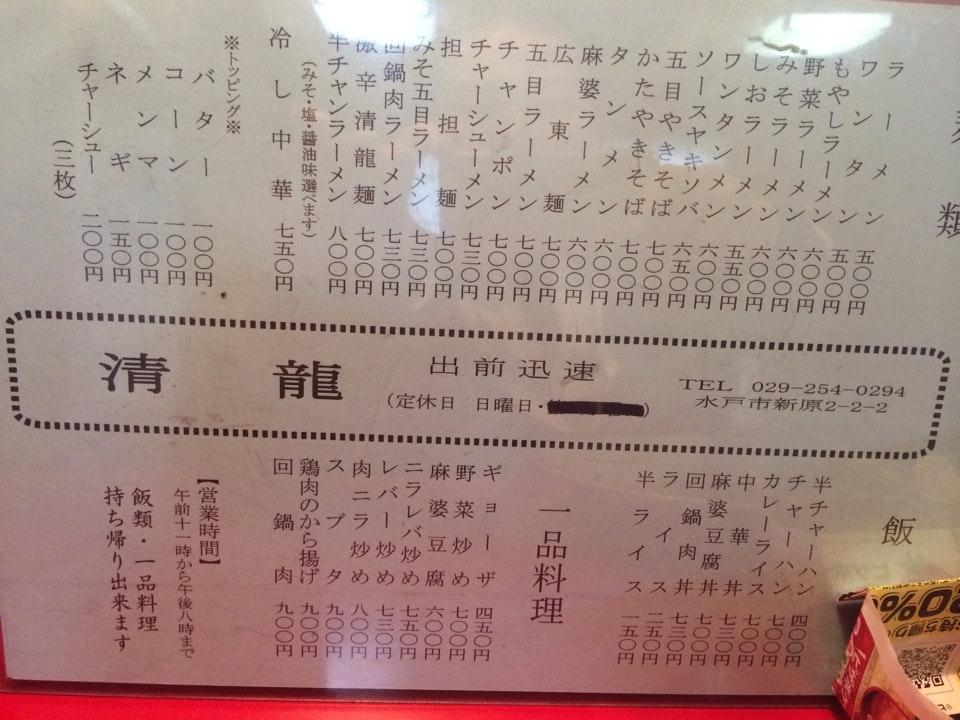 類
ラーメン 五〇〇円
ワンタン 五〇〇円
もやしラーメン 六〇〇円
野菜ラーメン 六〇〇円
みそラーメン 六〇〇円
しおラーメン 五五〇円
ワンタンメン 六〇〇円
ソースヤキソバ 六五〇円
五目やきそば 七〇〇円
かたやきそば 七〇〇円
タンメン 六〇〇円
麻婆ラーメン 六〇〇円
広東麺 七〇〇円
五目ラーメン 七〇〇円
チャンポン 七〇〇円
チャーシューメン 七三〇円
担担麺 七〇〇円
みそ五目ラーメン 七三〇円
回鍋肉ラーメン 七三〇円
激辛清龍麺 七〇〇円
半チャンラーメン 八〇〇円
(みそ・塩・醤油味選べます)
冷し中華 七五〇円
※トッピング※
バター 一〇〇円
コーン 一〇〇円
メンマ 一〇〇円
ネギ 一五〇円
チャーシュー(三枚) 二〇〇円
清龍
出前迅速
(定休日 日曜日・
TEL 029-254-0294
水戸市新原2-2-2
飯
半チャーハン 四〇〇円
チャーハン 七〇〇円
カレーライス 七〇〇円
中華丼 七三〇円
麻婆豆腐丼 七〇〇円
回鍋肉丼 七三〇円
ライス 二五〇円
半ライス 一五〇円
一品料理
ギョーザ 四五〇円
野菜炒め 七〇〇円
麻婆豆腐 六〇〇円
ニラレバ炒め 七五〇円
レバー炒め 七三〇円
肉ニラ炒め 八〇〇円
スブタ 九〇〇円
鶏肉のから揚げ 九〇〇円
回鍋肉 九〇〇円
【営業時間】
午前十一時から午後八時まで
飯類・一品料理
持ち帰り出来ます